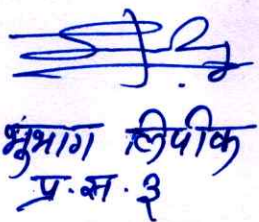 भुंभाग लिपीक
प्र.स.३